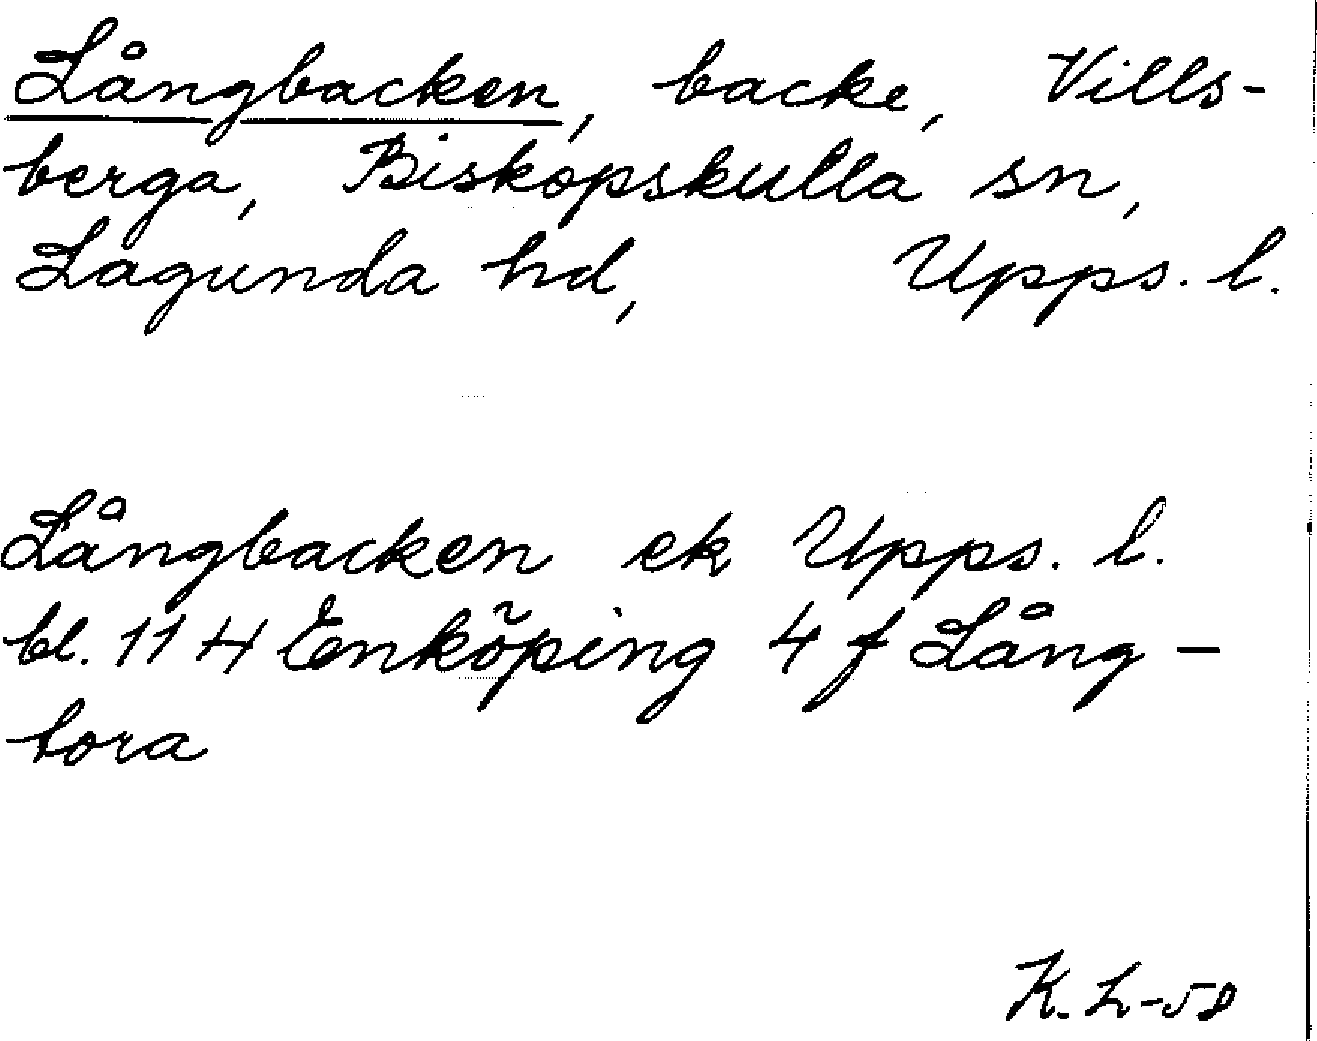 Långbacken, backe, Vills-
berga, Biskopskulla sn,
Lagunda hd, Upps. l.
Långbacken ek Upps. l.
bl. 11 H Enköping 4 f Lång-
tora
K. L-58